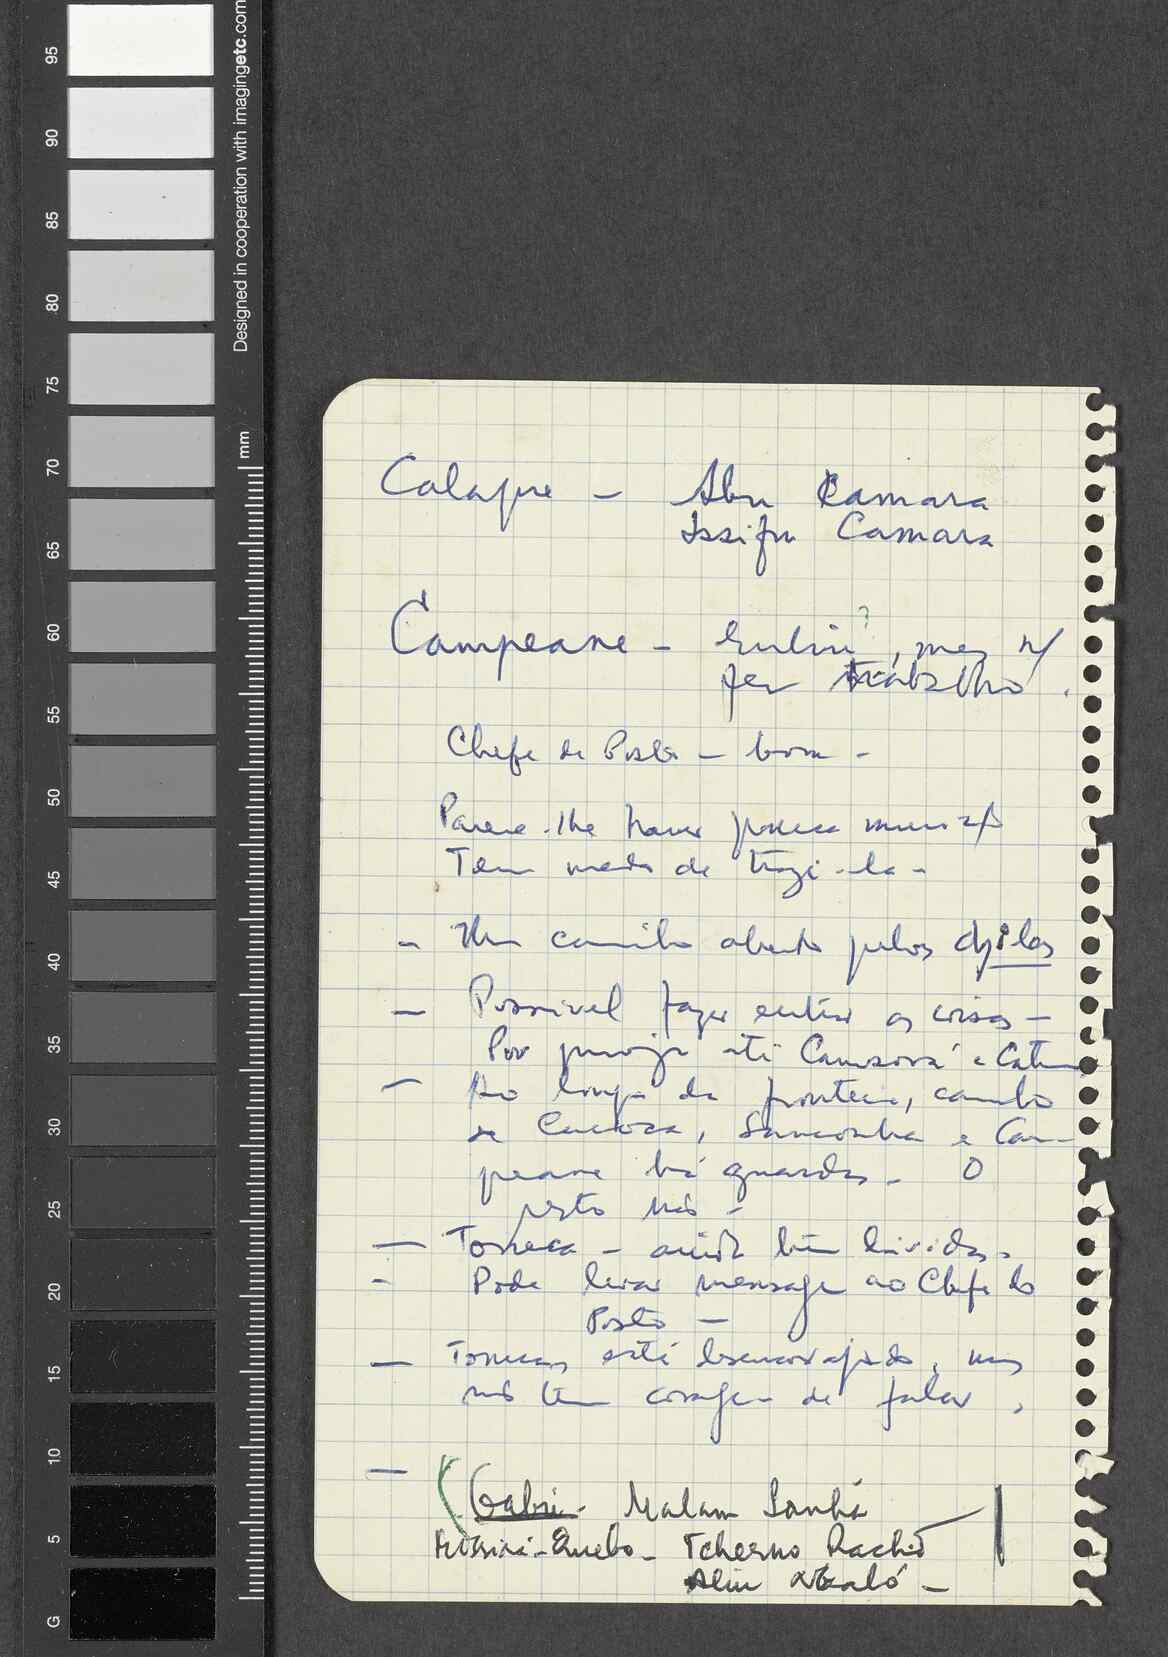 95
90
85
80
75
70
65
60
55
50
45
40
35
30
25
20
15
10
5
G
Designed in cooperation with imagingetc.com
mm
Calaque - Abu Camara
Issifu Camara
Campeane - ? , mas n/
fez trabalho.
Chefe de Posto - bom -
Parece-lhe haver pouca
Tem medo de trazê-la -
- Um caminho aberto pelos djilas
- Possível fazer entrar as coisas -
Por até Camxorá e
- Ao longo da fronteira, caminho
de Cacoca, Sanconha e Cam-
peane há guardas. O
resto não -
- Torreca - ainda tem dúvidas.
- Pode levar mensagem ao Chefe do
Posto -
- está desencorajado, mas
não tem coragem de falar.
- (Gabú - Malam Sanhá
-Quebo - Tcherno Rachid
Aliu -